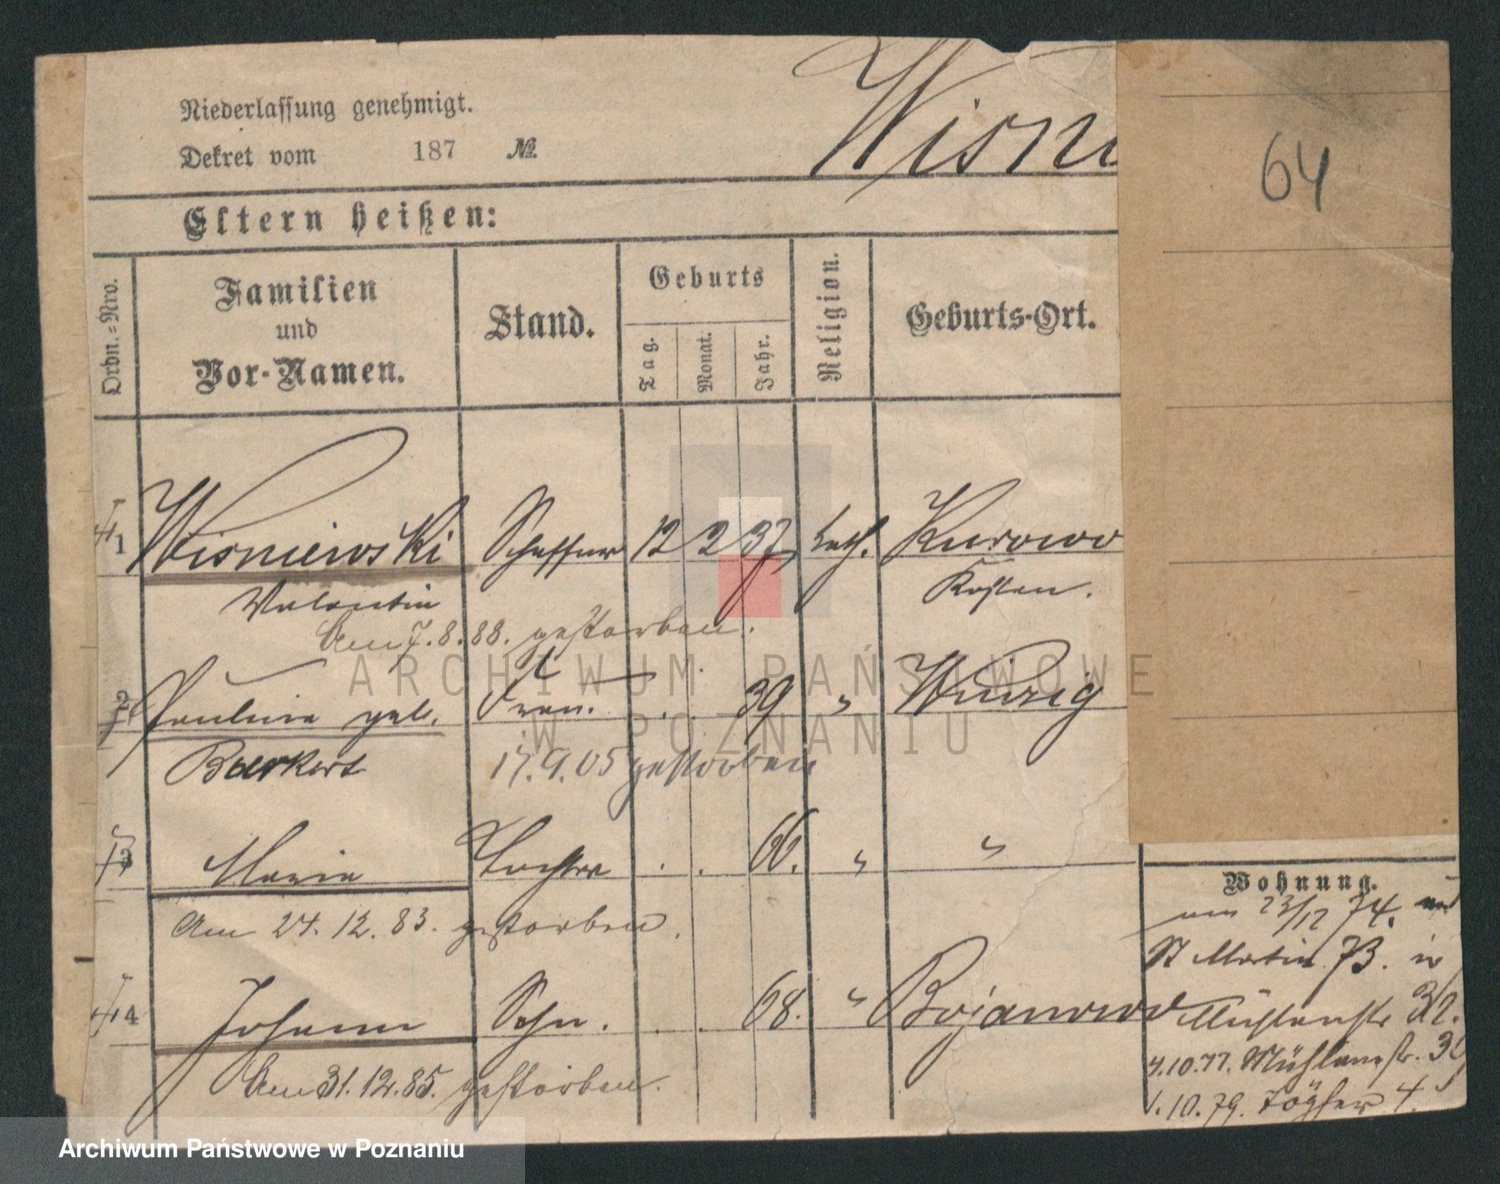 Niederlassung genehmigt.
Dekret vom 187 №
Wisni
64
Eltern heißen:
Ordn.=Nro.
Familien
und
Vor-Namen.
Stand.
Geburts
Tag.
Monat.
Jahr.
Religion.
Geburts-Ort.
1 Wisniewski Schaffner 12 2 37 kath. Kurowo
Valentin Kosten.
Am 7.8.88. gestorben.
2 Pauline geb. Frau. 39 " Wirsig
Barkert 17.9.05 gestorben
3 Maria Tochter . . 66. " "
Am 24.12.83. gestorben.
4 Johann Sohn. . . 68. " Bojanowo
Am 31.12.85. gestorben.
Wohnung.
am 23/12 74. und
St Martin 73. in
Mühlenstr 32.
4.10.77. Mühlenstr.
1.10.79. 4.
ARCHIWUM PAŃSTWOWE
W POZNANIU
Archiwum Państwowe w Poznaniu